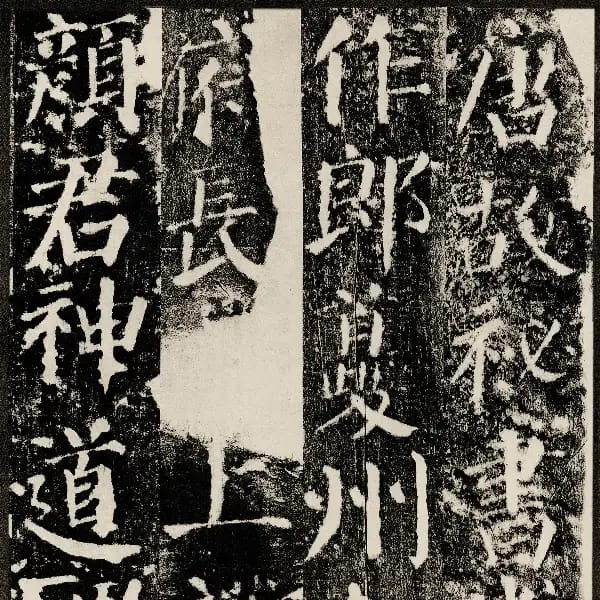 唐故祕書
作郎夔州
府長上
顏君神道